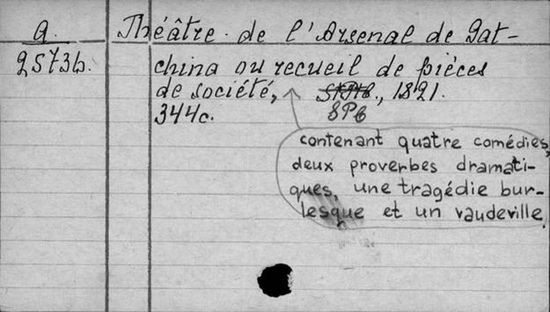 a.
2573b.
Théâtre de l'Arsenal de Gat-
china ou recueil de pièces
de société, StPtb., 1821.
SPb
344c.
contenant quatre comédies,
deux proverbes dramati-
ques, une tragédie bur-
lesque et un vaudeville.